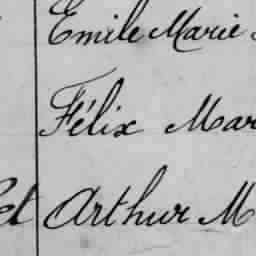 Emile Marie
Félix Mar
et Arthur M